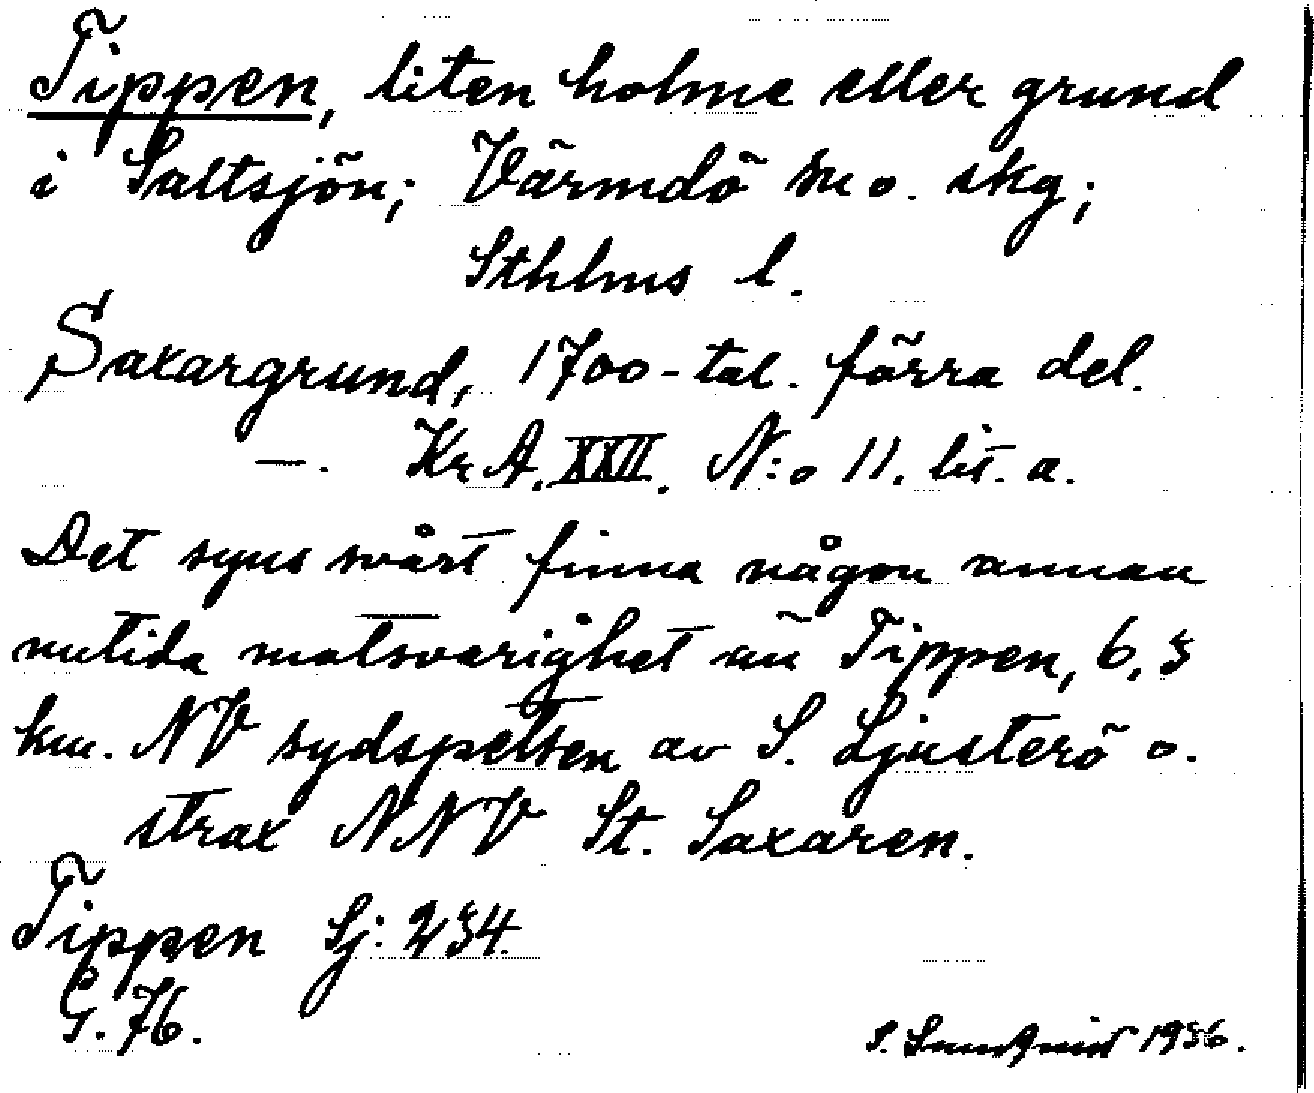 Tippen, liten holme eller grund
i Saltsjön; Värmdö sn o. skg;
Sthlms l.
Saxargrund, 1700-tal. förra del.
—. Kr. A. XXII. N:o 11. lit. a.
Det synes svårt finna någon annan
nutida motsvarighet än Tippen, 6,3
km. NV sydspetsen av S. Ljusterö o.
strax NNV St. Saxaren.
Tippen Sj: 234.
G. 76.
S. Sundqvist 1936.